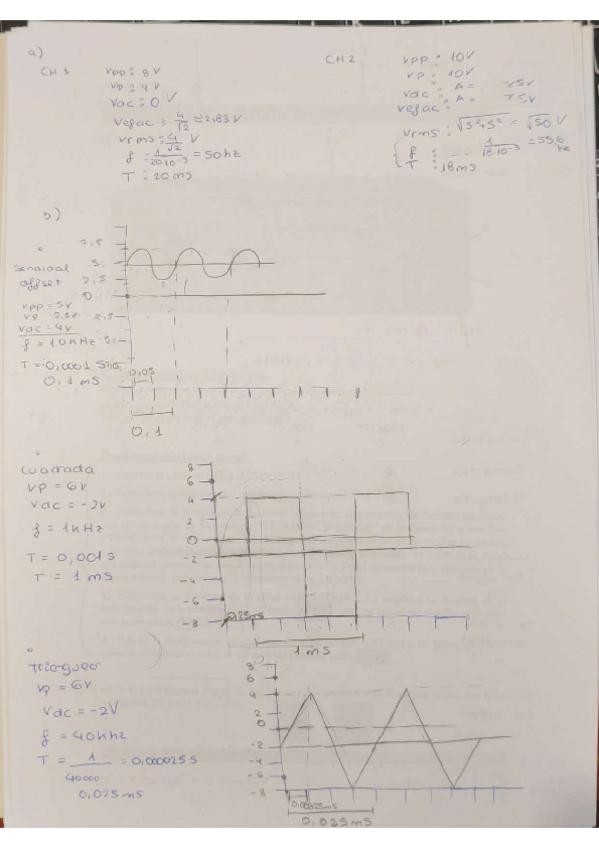 a)
CH 1
Vpp : 8 V
Vp : 4 V
Vac : 0 V
Vefac : 4/√2 ≈ 2,83 V
Vrms : 4/√2 V
f : 1/20·10⁻³ = 50hz
T : 20 ms
CH 2
Vpp : 10V
Vp : 10V
Vdc : A =
Vefac : A =
Vrms : √5²+5² = √50 V
f : 1/18·10⁻³ = 55,6 hz
T : 18ms
b)
offset
Vpp = 5V
Vac = 4V
f = 10KHz
T = 0,0001 s
0,1 ms
7,5
5
2,5
0
2,5
5
0,05
0,1
cuadrada
Vp = 6V
Vdc = -2V
f = 1kHz
T = 0,001 s
T = 1 ms
8
6
4
2
0
-2
-4
-6
-8
0,25ms
1 ms
Vp = 6V
Vdc = -2V
f = 40khz
T = 1/40000 = 0,000025 s
0,025 ms
8
6
4
2
0
-2
-4
-6
-8
0,025ms